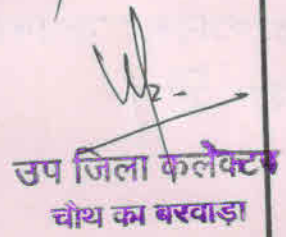 उप जिला कलेक्टर
चौथ का बरवाड़ा